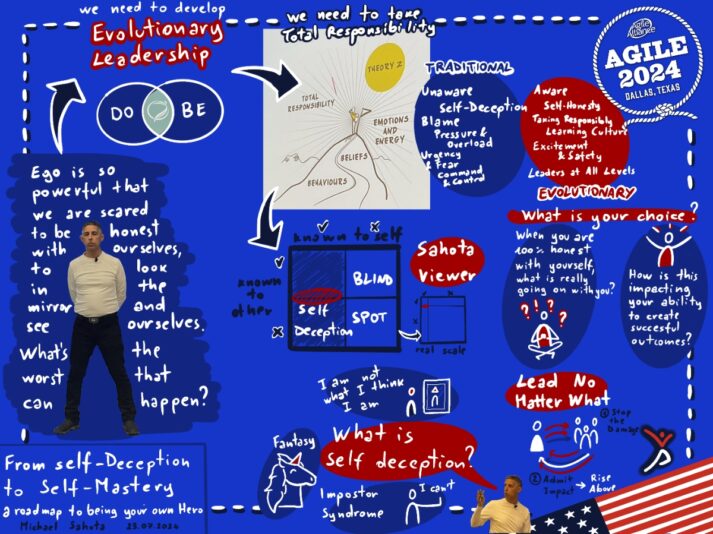 we need to develop
Evolutionary
Leadership
DO
BE
we need to take
Total Responsibility
THEORY Z
TOTAL
RESPONSIBILITY
EMOTIONS
AND
ENERGY
BELIEFS
BEHAVIOURS
TRADITIONAL
Unaware
Self-Deception
Blame
Pressure &
Overload
Urgency
& Fear
Command
& Control
Aware
Self-Honesty
Taking Responsibly
Learning Culture
Excitement
& Safety
Leaders at All Levels
EVOLUTIONARY
Agile
Alliance
AGILE
2024
DALLAS, TEXAS
Ego is so
powerful that
we are scared
to be honest
with ourselves,
to look
in the
mirror and
see ourselves.
What's the
worst that
can happen?
known to self
known
to
other
BLIND
SPOT
Self
Deception
Sahota
Viewer
real scale
What is your choice?
When you are
100% honest
with yourself,
what is really
going on with you?
?!?!?
How is this
impacting
your ability
to create
succesful
outcomes?
I am not
what I think
I am
Fantasy
What is
Self deception?
Impostor
Syndrome
I can't
Lead No
Matter What
① Stop
the
Damage
② Admit
Impact → Rise
Above
From self-Deception
to Self-Mastery
a roadmap to being your own Hero
Michael Sahota 23.07.2024